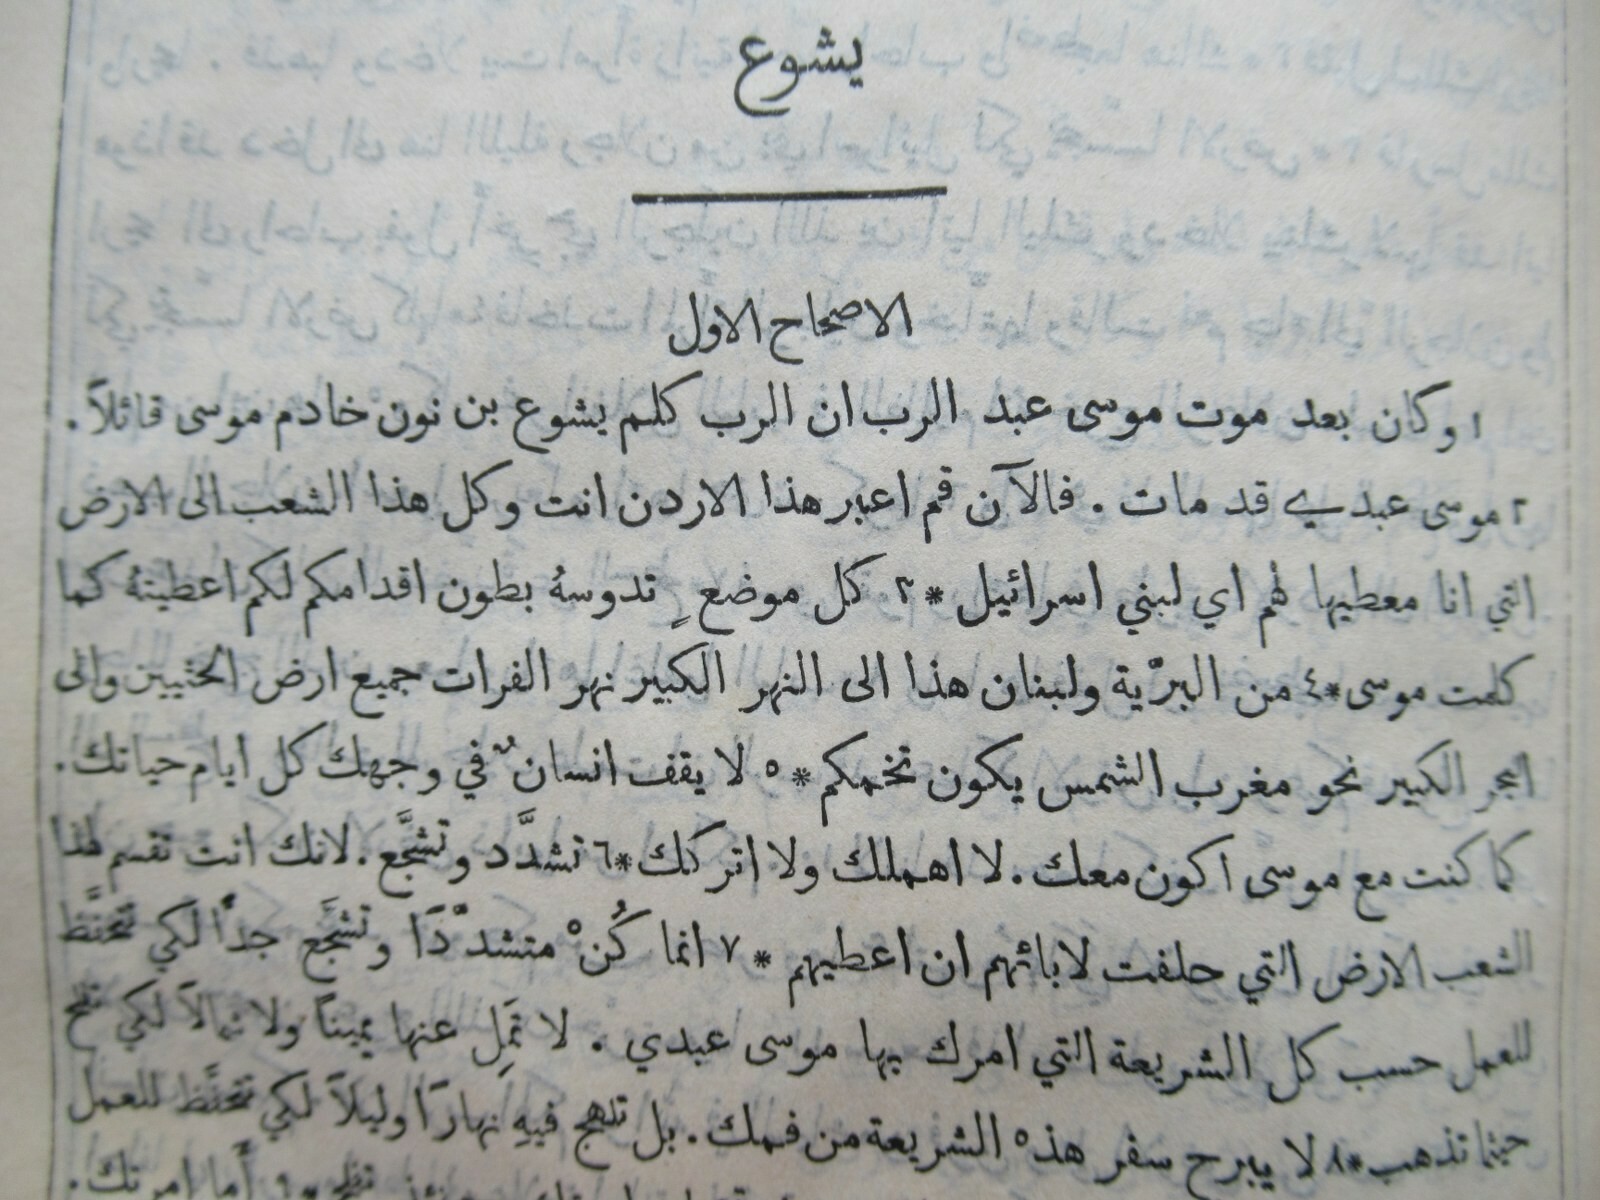 يشوع
الاصحاح الاول
١ وكان بعد موت موسى عبد الرب ان الرب كلم يشوع بن نون خادم موسى قائلاً .
٢ موسى عبدي قد مات . فالآن قم اعبر هذا الاردن انت وكل هذا الشعب الى الارض
التي انا معطيها لهم اي لبني اسرائيل * ٣ كل موضعٍ تدوسهُ بطون اقدامكم لكم اعطيتهُ كما
كلمت موسى * ٤ من البرّية ولبنان هذا الى النهر الكبير نهر الفرات جميع ارض الحثيين والى
البحر الكبير نحو مغرب الشمس يكون تخمكم * ٥ لا يقف انسانٌ في وجهك كل ايام حياتك .
كما كنت مع موسى اكون معك . لا اهملك ولا اتركك * ٦ تشدَّد وتشجَّع . لانك انت تقسم لهذا
الشعب الارض التي حلفت لابائهم ان اعطيهم * ٧ انما كُنْ متشدّدًا وتشجَّع جدًّا لكي تتحفَّظ
للعمل حسب كل الشريعة التي امرك بها موسى عبدي . لا تَمِل عنها يمينًا ولا شمالاً لكي تفلح
حيثما تذهب * ٨ لا يبرح سفر هذه الشريعة من فمك . بل تلهج فيهِ نهارًا وليلاً لكي تتحفَّظ للعمل
أما امرتك .